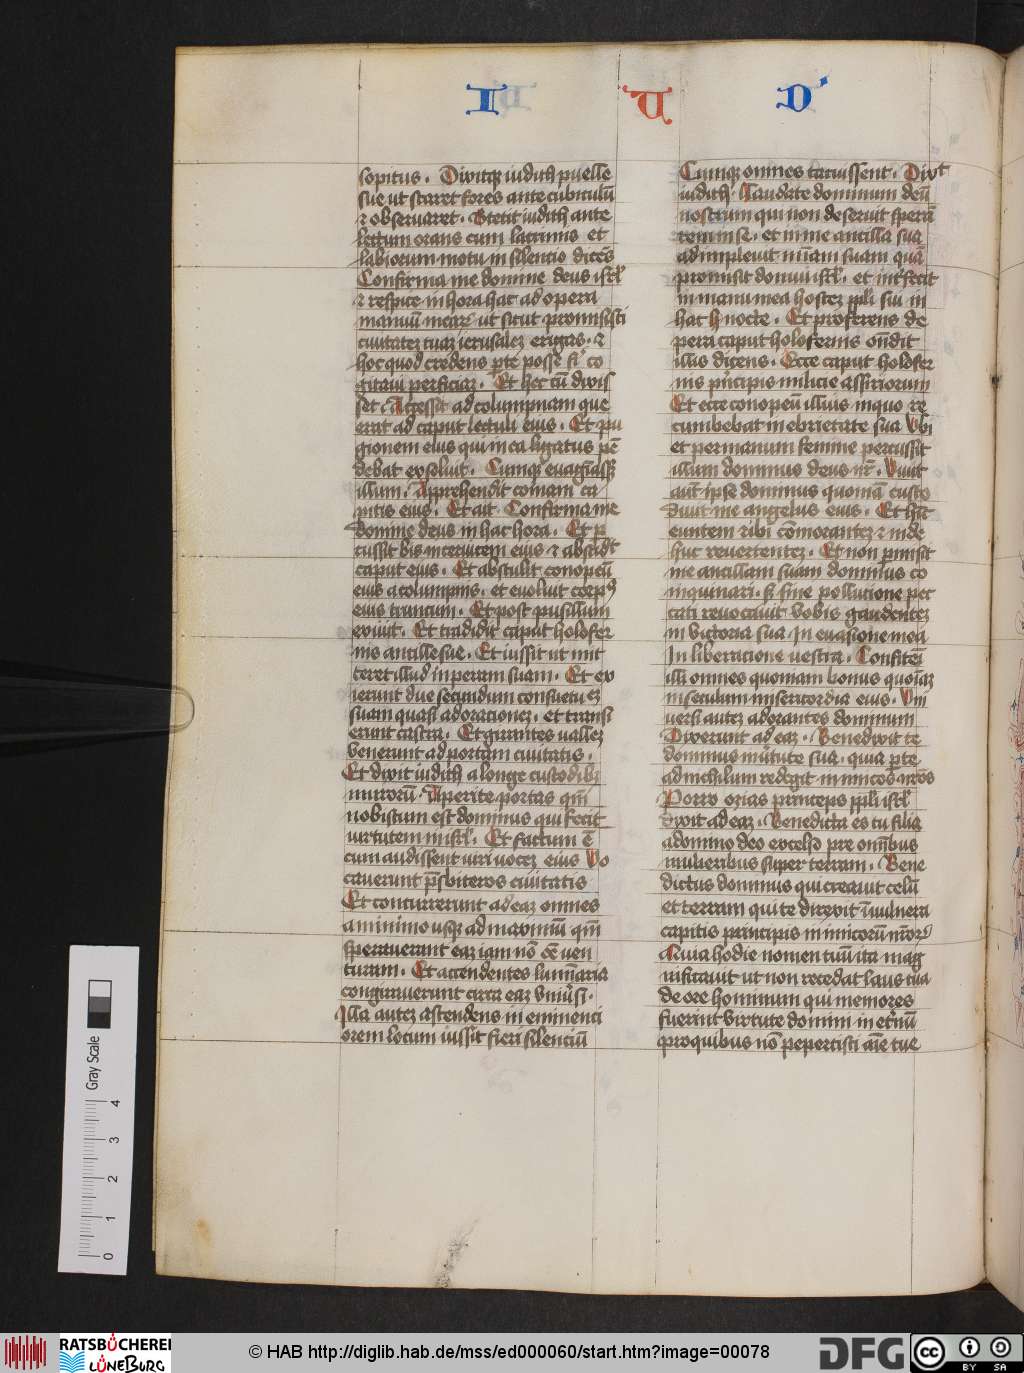 I U D'
sopitus. Dixitq3 iudith puelle
sue ut staret fores ante cubiculū
⁊ observaret. Stetit iudith ante
lectum orans cum lacrimis et
labiorum motu in silencio dicēs
Confirma me domine deus isrl'
⁊ respice in hora hac ad opera
manuū mear ut sicut promisisti
civitatez tuaz ierusalez erigas. ⁊
hoc quod credens p te posse fi' co
gitavi perficiaz. Et hec cū dixis
set. Accessit ad columpnam que
erat ad caput lectuli eius. Et pu
gionem eius qui in ea ligatus pē
debat exsoluit. Cumq3 evagīasz
illum. Apprehendit comam ca
pitis eius. Et ait. Confirma me
domine deus in hac hora. Et p
cussit bis in cervicem eius ⁊ abscidt
caput eius. Et abstulit conopeū
eius a columpnis. et evoluit corp9
eius truncum. Et post pusillum
exiuit. Et tradidit caput holofer
nis ancille sue. Et iussit ut mit
teret illud in peram suam. Et ex
ierunt due secundum consuetu ez
suam quasi ad oracionez. et transi
erunt castra. Et girantes vallez
venerunt ad portam civitatis.
Et dixit iudith a longe custodibz
murorū. Aperite portas qm
nobiscum est dominus qui fecit
virtutem in isrl'. Et factum ē
cum audissent viri vocez eius Vo
caverunt p̄sbiteros civitatis
Et concurrerunt ad eaz omnes
a minimo usq3 ad maximū qm
speraverant eaz iam nō ēē ven
turam. Et accendentes luminaria
congiraverunt circa eaz vniusi.
Illa autez ascendens in eminenci
orem locum iussit fieri silenciū
Cumq3 omnes tacuissent. Dixt
iudith. Laudate dominum deū
nostrum qui non deseruit sperā
tem in se. et in me ancilla sua
adimplevit mīam suam quā
promisit domui isrl'. et int'fecit
in manu mea hostez ppli sui in
hac h nocte. Et proferens de
pera caput holofernis ondit
illis dicens. Ecce caput holofer
nis p'ncipis milicie assiriorum
Et ecce conopeū illius in quo re
cumbebat in ebrietate sua Vbi
et per manum femine percussit
illum dominus deus nr. Vivit
aut ipse dominus quoniā custo
divit me angelus eius. Et hīc
euntem ⁊ ibi cōmorantez ⁊ inde
huc revertentez. Et non p̄misit
me ancillam suam dominus co
inquinari. s; sine pollucione pec
cati revocavit vobis gaudentez
in victoria sua. In evasione mea
In liberacione vestra. Confitēi
illi omnes quoniam bonus quoniaz
in seculum misericordia eius. Vni
versi autez adorantes dominum
Dixerunt ad eaz. Benedixit te
dominus in v'tute sua. qua p te
ad nichilum redegit inimicos nros
Porro ozias princeps ppli isrl'
dixit ad eaz. Benedicta es tu filia
a domino deo excelso pre omībus
mulieribus super terram. Bene
dictus dominus qui creavit celū
et terram qui te direxit ī vulnera
capitis principis inimicorū nror'
Quia hodie nomen tuū ita mag
nificavit ut non recedat laus tua
de ore hominum qui memores
fuerint virtute domini in et'nū
pro quibus nō pepercisti aīe tue
Gray Scale
0 1 2 3 4
RATSBÜCHEREI LÜNEBURG
© HAB http://diglib.hab.de/mss/ed000060/start.htm?image=00078
DFG
cc BY SA